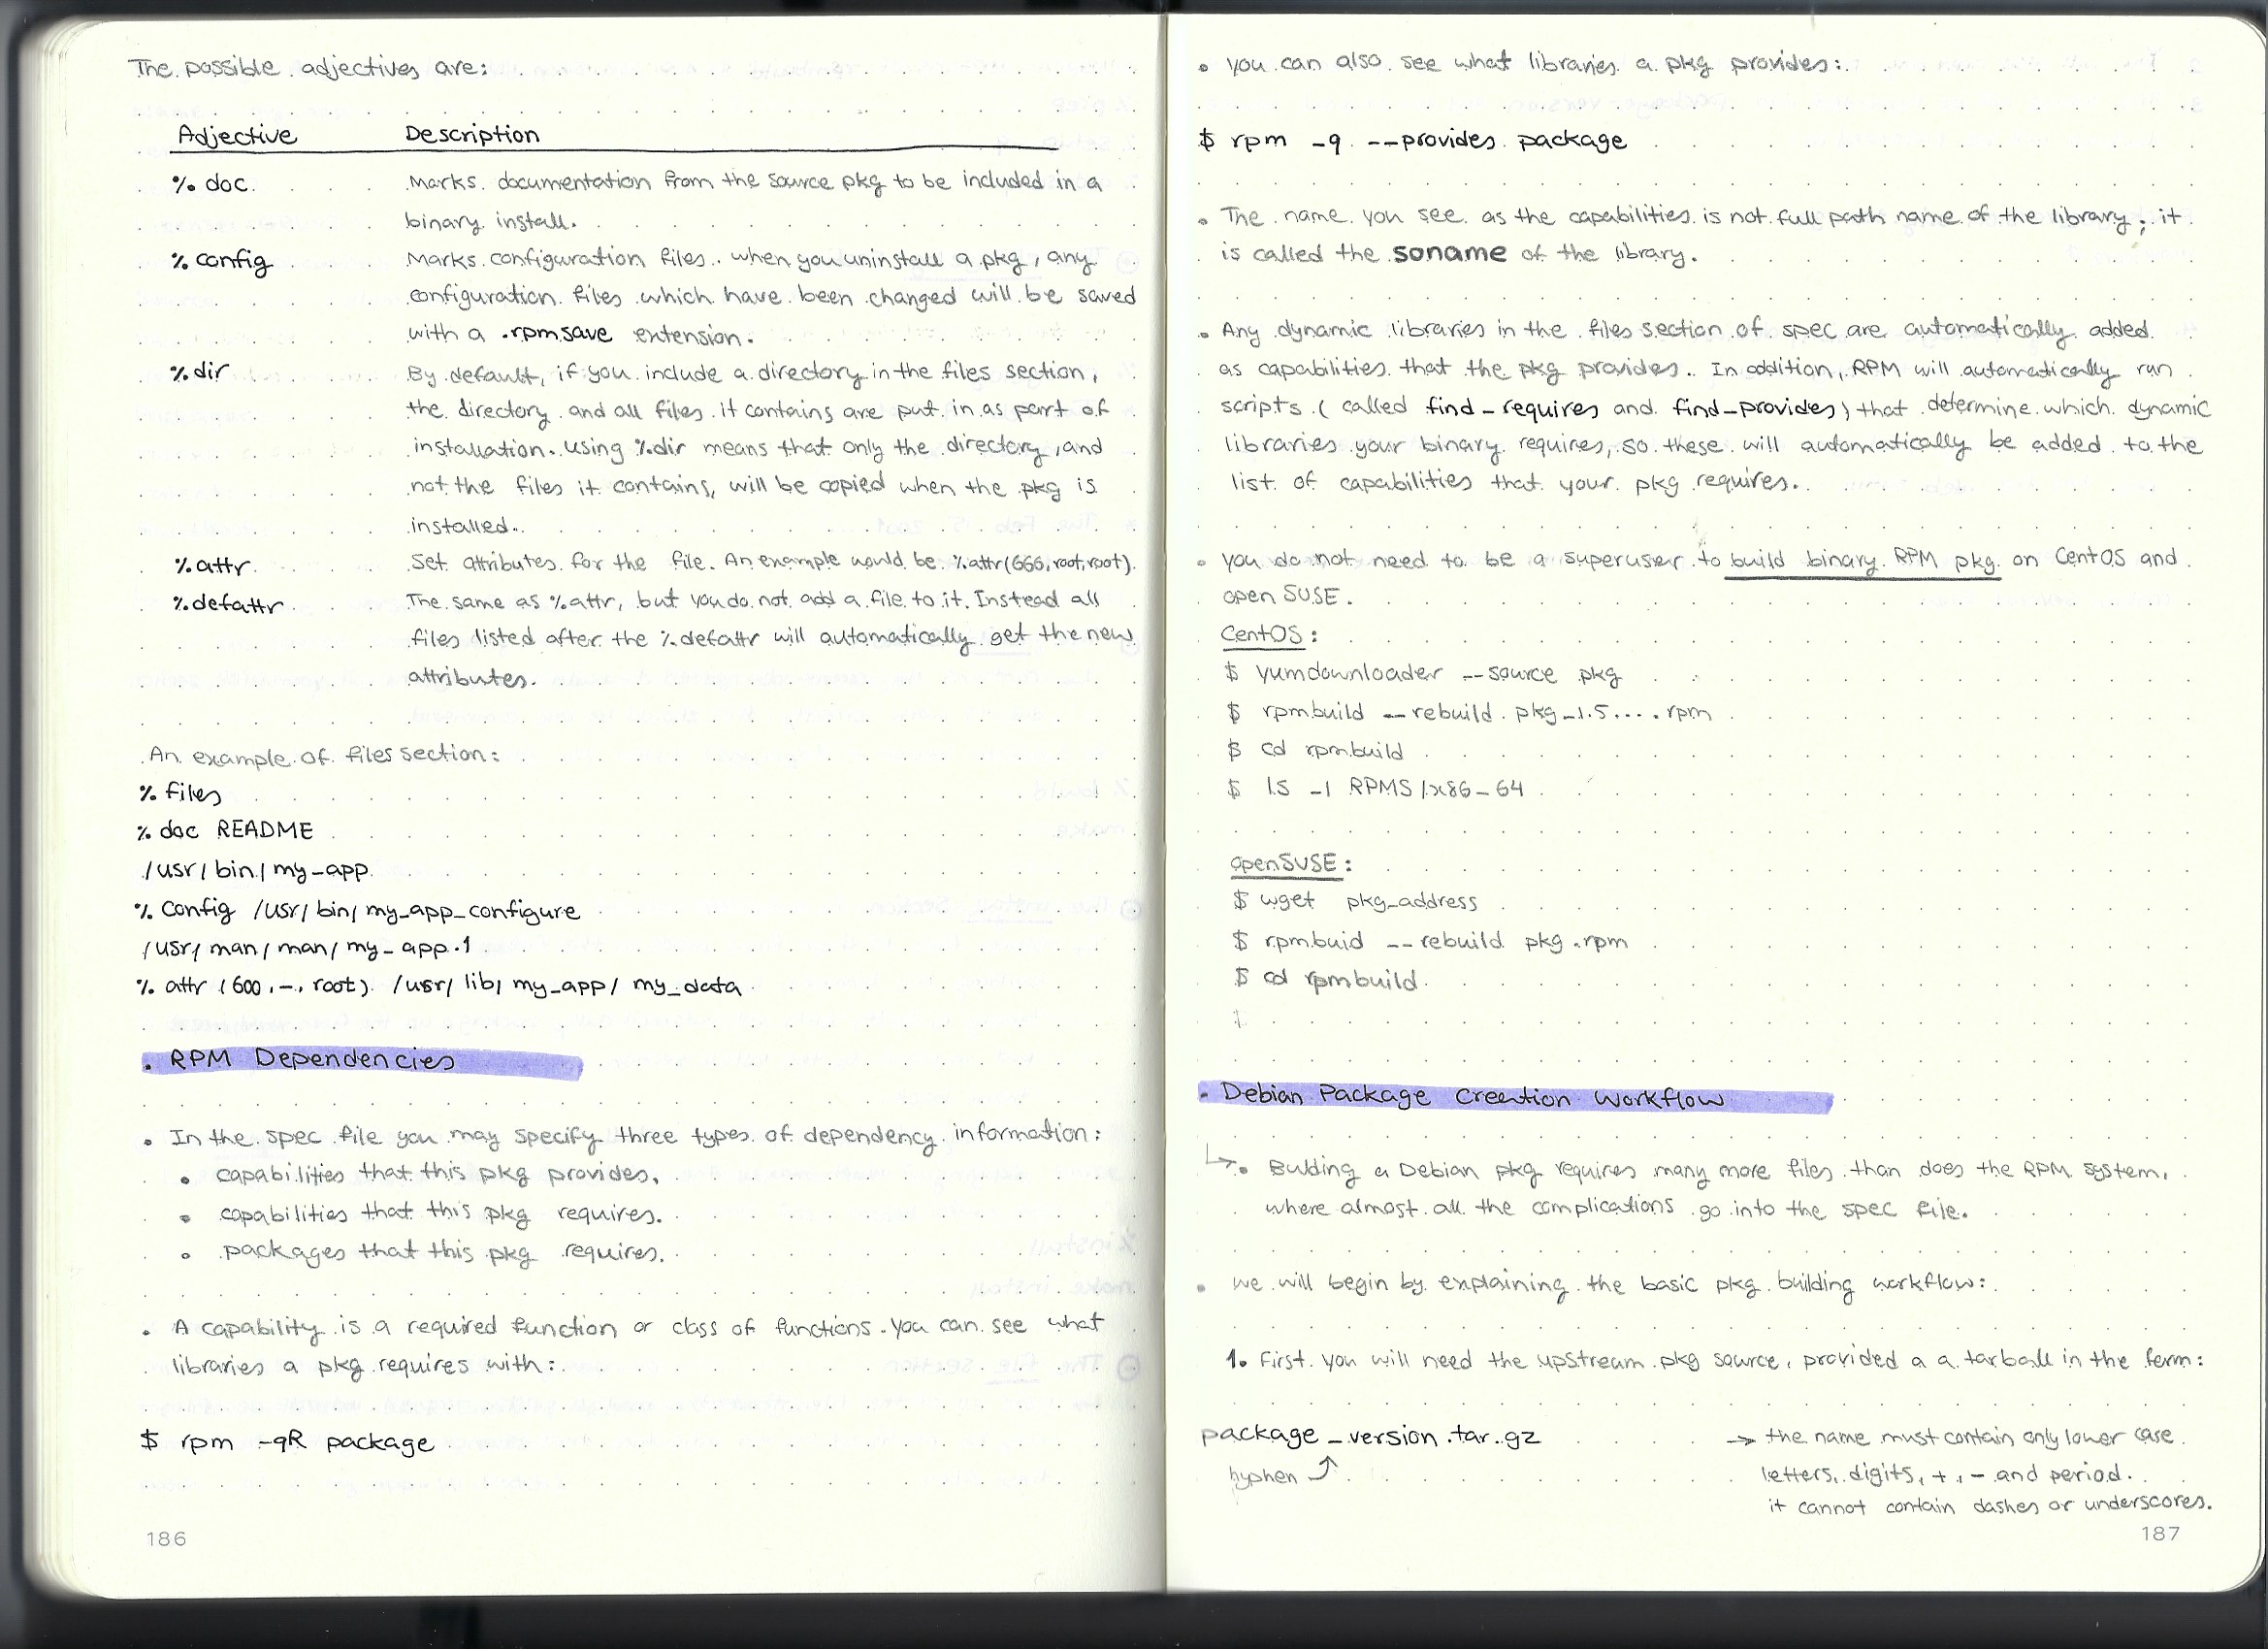 The possible adjectives are:
Adjective Description
% doc Marks documentation from the source pkg to be included in a
binary install.
% config Marks configuration files. when you uninstall a pkg, any
configuration files which have been changed will be saved
with a .rpmsave extension.
%dir By default, if you include a directory in the files section,
the directory and all files it contains are put in as part of
installation. using %dir means that only the directory, and
not the files it contains, will be copied when the pkg is
installed.
%attr Set attributes for the file. An example would be %attr(666,root,root).
%defattr The same as %attr, but you do not add a file to it. Instead all
files listed after the %defattr will automatically get the new
attributes.
An example of files section:
% files
% doc README
/usr/bin/my_app
% config /usr/bin/my_app_configure
/usr/man/man/my_app.1
% attr (600,-, root) /usr/lib/my_app/my_data
. RPM Dependencies
• In the spec file you may specify three types of dependency information:
• capabilities that this pkg provides.
• capabilities that this pkg requires.
• packages that this pkg requires.
• A capability is a required function or class of functions. you can see what
libraries a pkg requires with:
$ rpm -qR package
186
• you can also see what libraries a pkg provides:
$ rpm -q --provides package
• The name you see as the capabilities is not full path name of the library; it
is called the soname of the library.
• Any dynamic libraries in the files section of spec are automatically added
as capabilities that the pkg provides. In addition, RPM will automatically run
scripts (called find-requires and find-provides) that determine which dynamic
libraries your binary requires, so these will automatically be added to the
list of capabilities that your pkg requires.
• you do not need to be a superuser to build binary RPM pkg on CentOS and
openSUSE.
CentOS:
$ yumdownloader --source pkg
$ rpmbuild --rebuild pkg-1.5....rpm
$ cd rpmbuild
$ ls -l RPMS/x86-64
openSUSE:
$ wget pkg_address
$ rpmbuid --rebuild pkg.rpm
$ cd rpmbuild
- Debian Package Creation Workflow
↳• Bulding a Debian pkg requires many more files than does the RPM system,
where almost all the complications go into the spec file.
• we will begin by explaining the basic pkg building workflow:
1. First you will need the upstream pkg source, provided a a tarball in the form:
package_version.tar.gz → the name must contain only lower case
hyphen ↗ letters, digits, +, - and period.
it cannot contain dashes or underscores.
187